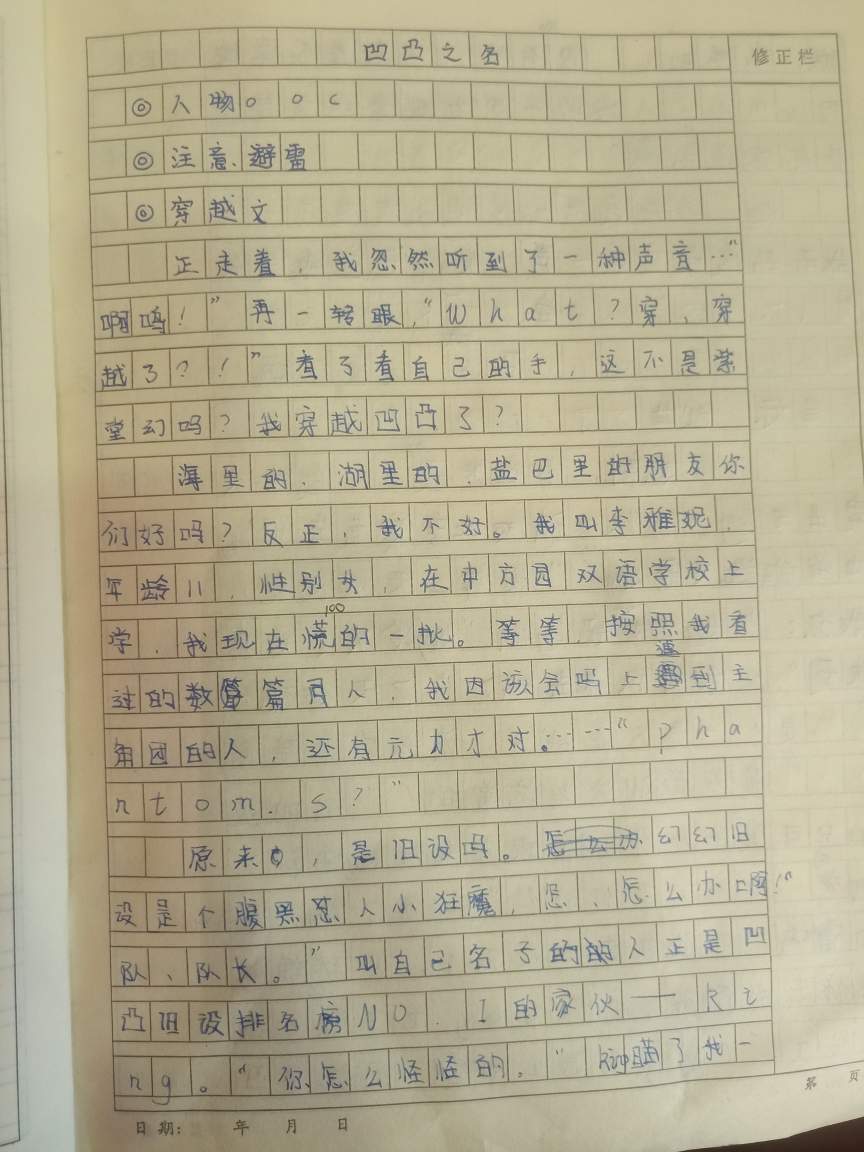 凹凸之名
修正栏
◎人物ooc
◎注意、避雷
◎穿越文
正走着，我忽然听到了一种声音…“
啊呜！”再一转眼，“What？穿、穿
越了？！”看了看自己的手，这不是紫
堂幻吗？我穿越凹凸了？
海里的、湖里的、盐巴里的朋友你
们好吗？反正，我不好。我叫李雅妮，
年龄11，性别女，在中方园双语学校上
学，我现在慌的一批。等等，按照我看
100
过的数篇同人，我因该会吗上遇到主
角团的人，还有元力才对。……“Pha
ntom.s？”
原来，是旧设吗。幻幻旧
设是个腹黑怼人小狂魔，怎、怎么办啊！“
队、队长。”叫自己名子的的人正是凹
凸旧设排名榜NO.1的家伙——Ki
ng。“你怎么怪怪的。”King瞄了我一
日期： 年 月 日
第 页